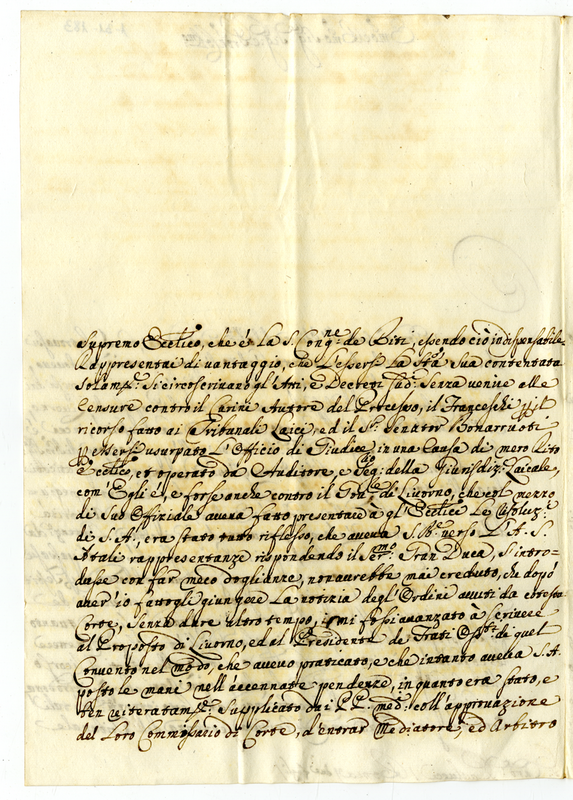 Supremo Eccl.tico, che è la S. Cong.ne de Riti, essendo ciò indispensabile.
Rappresentai di vantaggio, che l'essersi la S.tà Sua contentata
solam.e si circoscrivano gl'Atti, e Decreti sud.i senza venire alle
Censure contro il Carini Autore del Processo, il Franceschi
ricorso fatto ai Tribunali Laici, ed il S.r Senator Bonarruoti
p essersi usurpato l'Officio di Giudice in una Causa di mero Rito
Eccl.tico, et operato da Auditore, e Seg.rio della Giurisdiz.e Laicale,
com'Egli è, e forse anche contro il Gov.re di Livorno, che pl mezzo
di suo Offiziale aveva fatto presentare a gl'Eccl.tici le Risoluz.i
di S. A., era stato tutto riflesso, che aveva S. B.e verso l'A. S.
A tali rappresentanze rispondendo il Ser.mo Gran Duca, s'intro=
dusse con far meco doglianze, non avrebbe mai creduto, che dopo
aver'io fattogli giungere la notizia degl'Ordini avuti da cotesta
Corte, senza dare altro tempo, mi fossi avanzato à scrivere
al Proposto di Livorno, ed al Presidente de Frati Oss.ti di quel
Convento nel modo, che avevo praticato, e che intanto aveva S. A.
posto le mani nell'accennate pendenze, in quanto era stato, e
ben reiteratam.e supplicato dai PP. med.i coll'approvazione
del Loro Commissario di Corte, d'entrar Mediatore, ed Arbitro